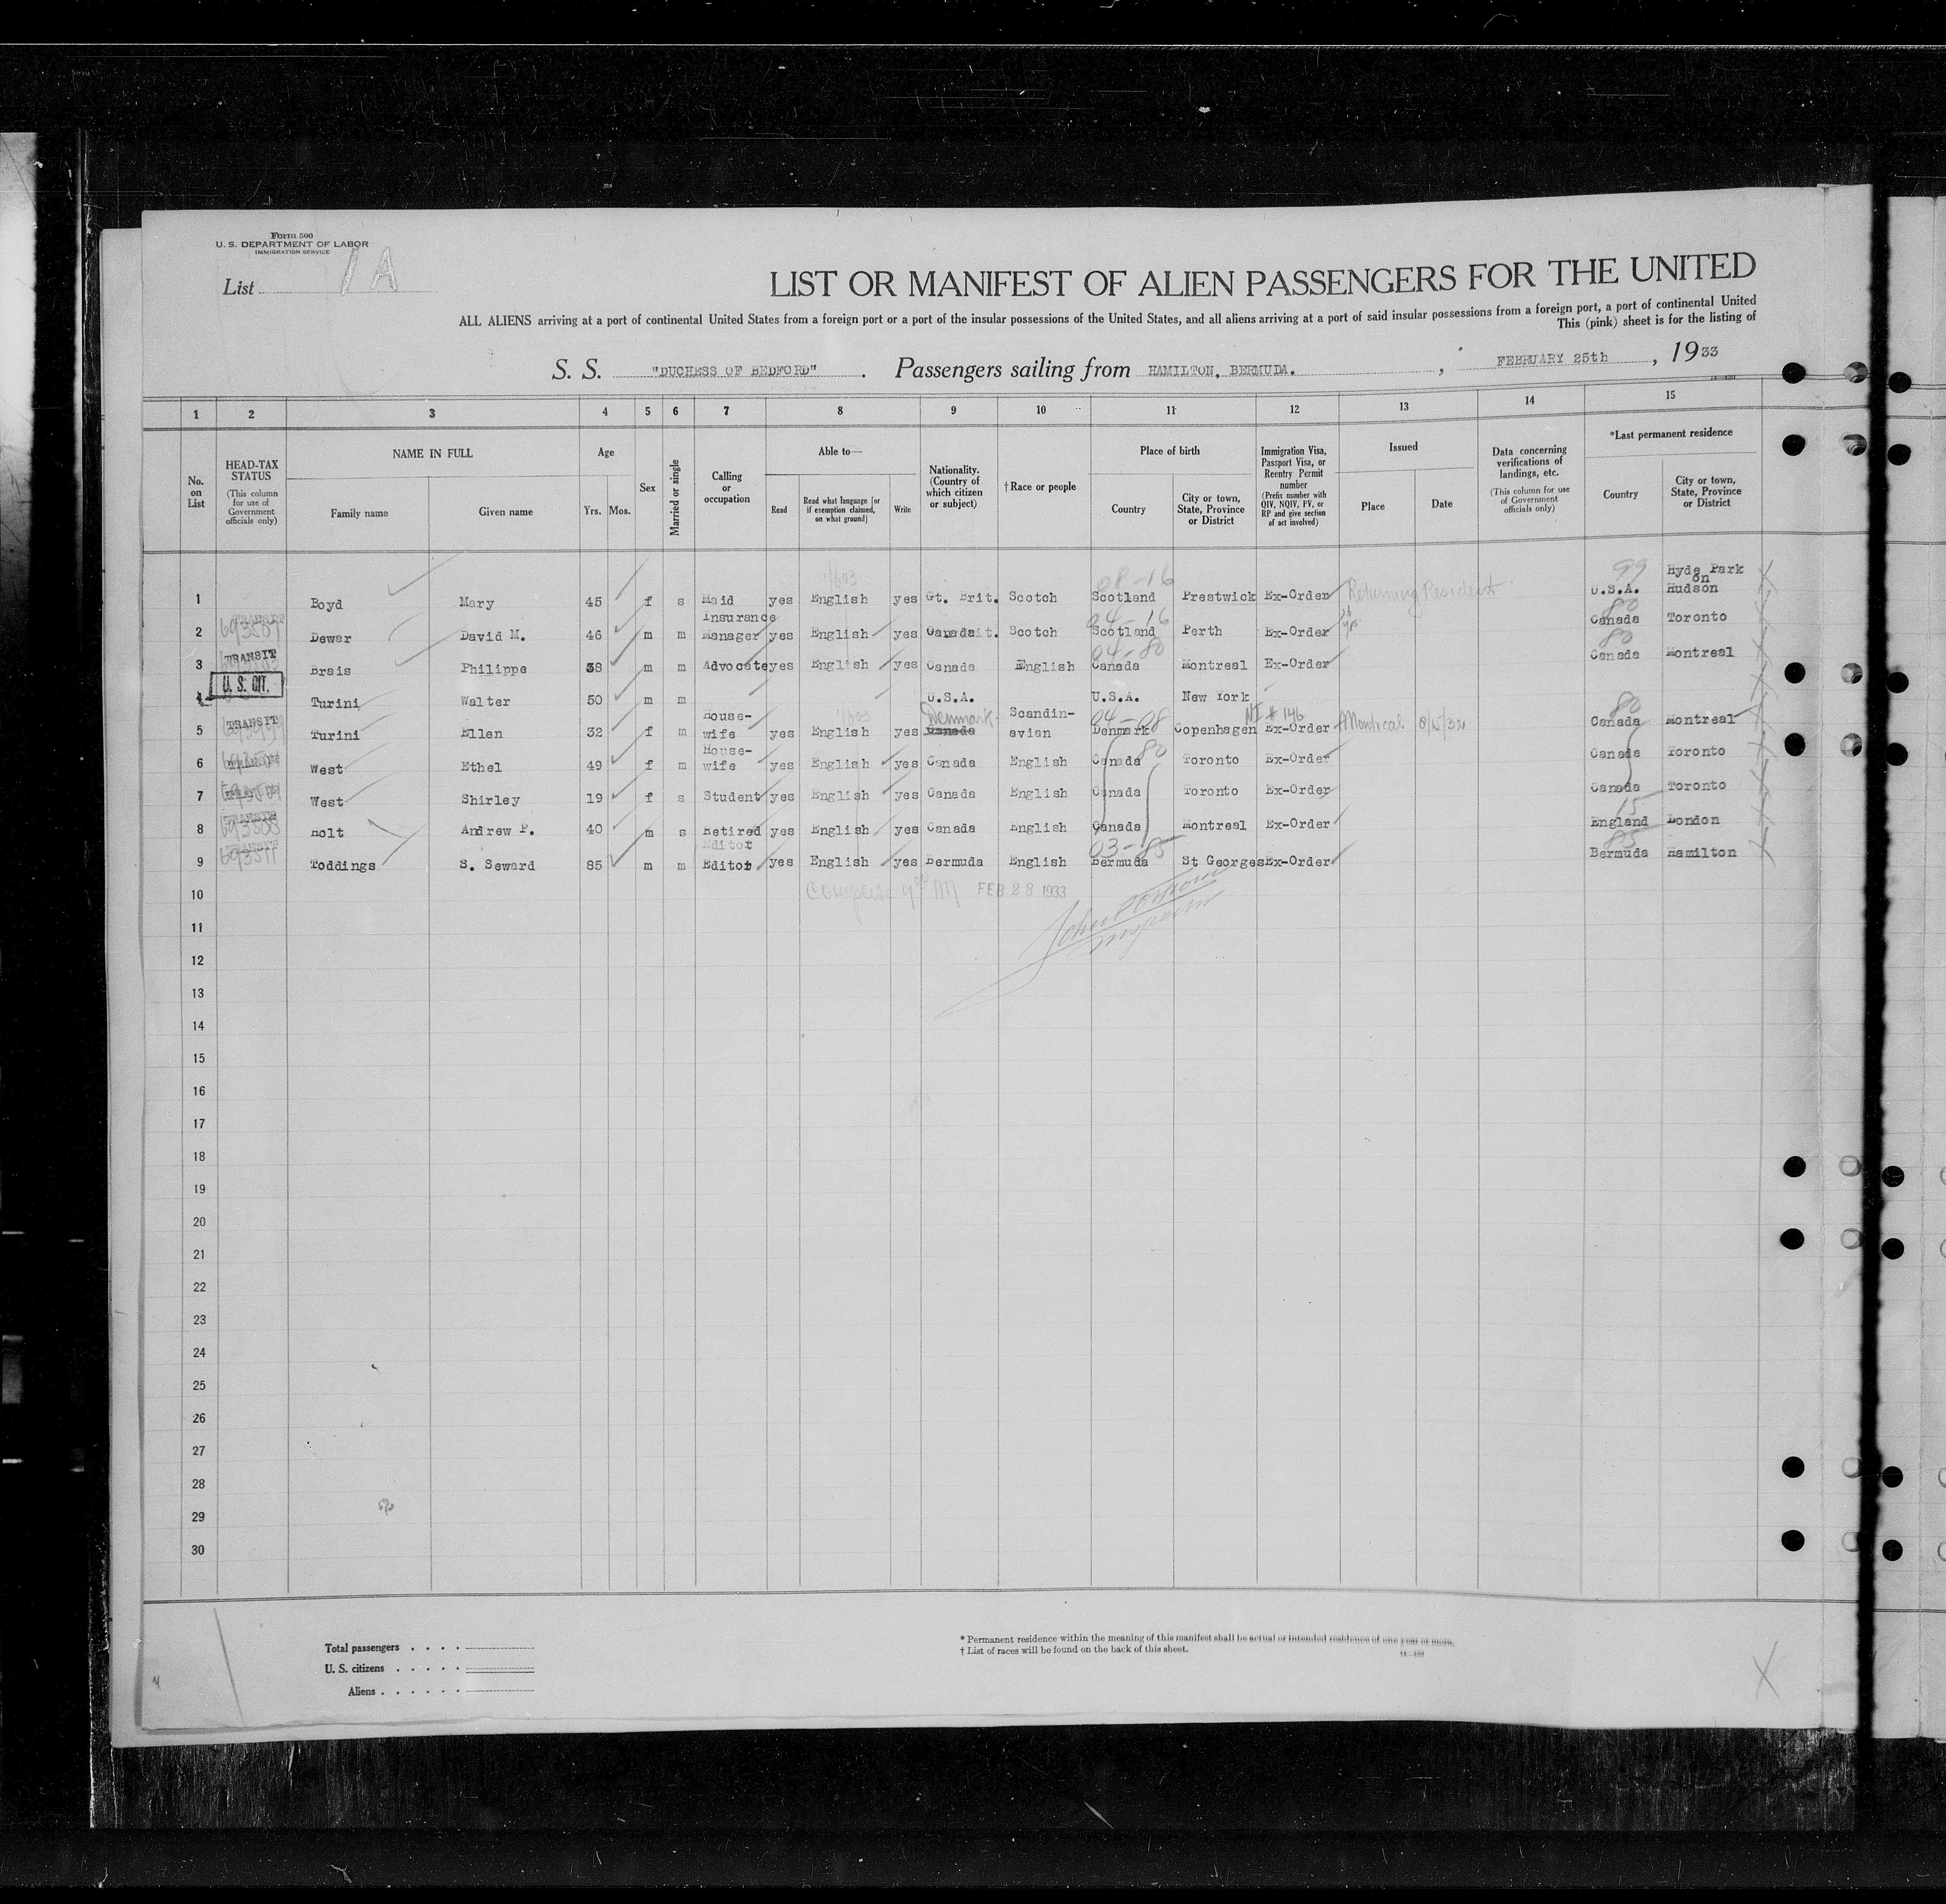 Form 500
U. S. DEPARTMENT OF LABOR
IMMIGRATION SERVICE
List 1A
LIST OR MANIFEST OF ALIEN PASSENGERS FOR THE UNITED
ALL ALIENS arriving at a port of continental United States from a foreign port or a port of the insular possessions of the United States, and all aliens arriving at a port of said insular possessions from a foreign port, a port of continental United
This (pink) sheet is for the listing of
S. S. "DUCHESS OF BEDFORD" . Passengers sailing from HAMILTON, BERMUDA. , FEBRUARY 25th , 1933
1 2 3 4 5 6 7 8 9 10 11 12 13 14 15
No. on List
HEAD-TAX STATUS
(This column for use of Government officials only)
NAME IN FULL
Family name Given name
Age
Yrs. Mos.
Sex
Married or single
Calling or occupation
Able to—
Read Read what language [or if exemption claimed, on what ground] Write
Nationality. (Country of which citizen or subject)
†Race or people
Place of birth
Country City or town, State, Province or District
Immigration Visa, Passport Visa, or Reentry Permit number
(Prefix number with QIV, NQIV, PV, or RP and give section of act involved)
Issued
Place Date
Data concerning verifications of landings, etc.
(This column for use of Government officials only)
*Last permanent residence
Country City or town, State, Province or District
1 Boyd Mary 45 f s Maid yes English yes Gt. Brit. Scotch 08-16 Scotland Prestwick Ex-Order Returning Resident 99 U.S.A. Hyde Park on Hudson
2 TRANSIT Dewar David M. 46 m m Insurance Manager yes English yes Canada Scotch 04-16 Scotland Perth Ex-Order 80 Canada Toronto
3 TRANSIT Brais Philippe 38 m m Advocate yes English yes Canada English 04-80 Canada Montreal Ex-Order 80 Canada Montreal
4 U. S. CIT. Turini Walter 50 m m U.S.A. U.S.A. New York
5 TRANSIT Turini Ellen 32 f m House-wife yes English yes Denmark Canada Scandin-avian 04-08 Denmark Copenhagen NI # 146 Ex-Order Montreal 80 Canada Montreal
6 TRANSIT West Ethel 49 f m House-wife yes English yes Canada English Canada 80 Toronto Ex-Order Canada Toronto
7 West Shirley 19 f s Student yes English yes Canada English Canada Toronto Ex-Order Canada Toronto
8 TRANSIT Holt Andrew P. 40 m s Retired yes English yes Canada English Canada Montreal Ex-Order 15 England London
9 TRANSIT Toddings S. Seward 85 m m Editor Editor yes English yes Bermuda English 03-85 Bermuda St Georges Ex-Order 85 Bermuda Hamilton
10 Complete 9 AM FEB 28 1933
11
12
13
14
15
16
17
18
19
20
21
22
23
24
25
26
27
28
29
30
Total passengers
U. S. citizens
Aliens
* Permanent residence within the meaning of this manifest shall be actual or intended residence of one year or more.
† List of races will be found on the back of this sheet.